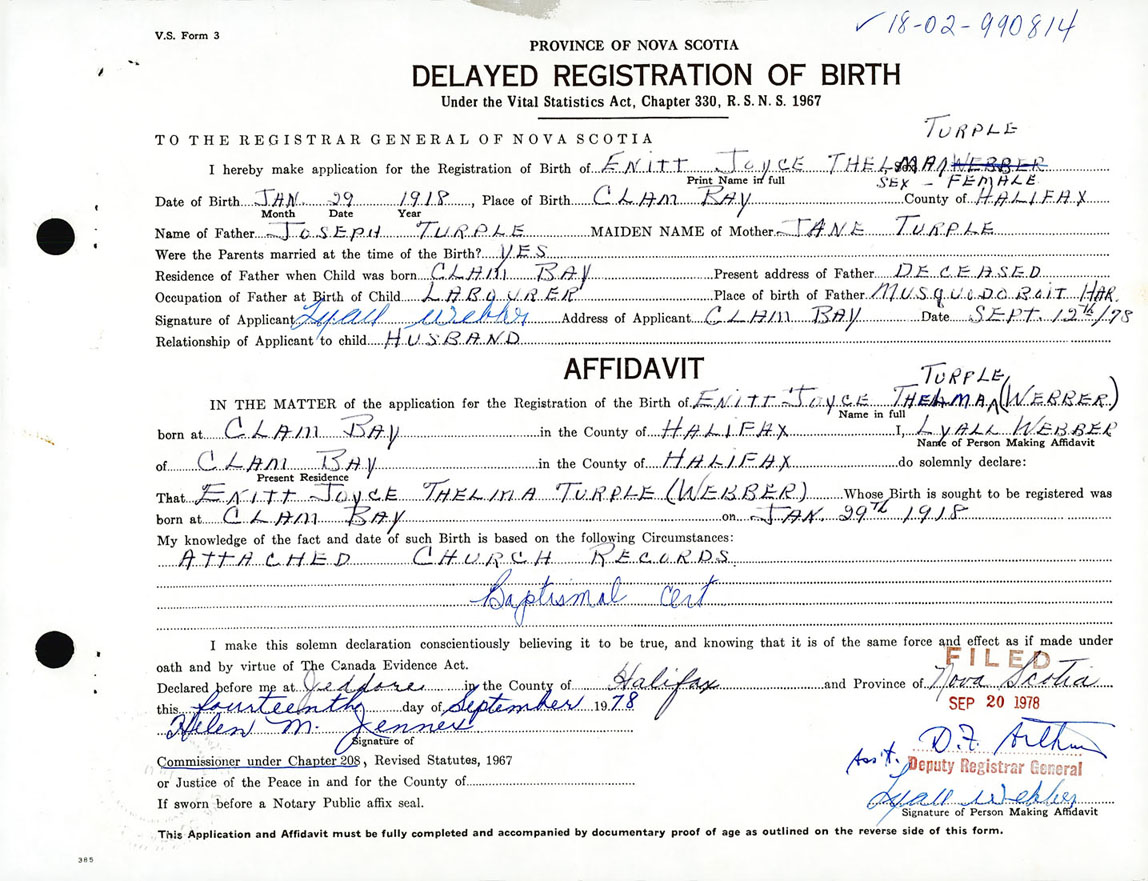 V.S. Form 3
✓ 18-02-990814
PROVINCE OF NOVA SCOTIA
DELAYED REGISTRATION OF BIRTH
Under the Vital Statistics Act, Chapter 330, R. S. N. S. 1967
TO THE REGISTRAR GENERAL OF NOVA SCOTIA
TURPLE
I hereby make application for the Registration of Birth of ENITT JOYCE THELMA WEBBER
Print Name in full
SEX - FEMALE
Date of Birth JAN. 29 1918, Place of Birth CLAM BAY County of HALIFAX
Month Date Year
Name of Father JOSEPH TURPLE MAIDEN NAME of Mother JANE TURPLE
Were the Parents married at the time of the Birth? YES
Residence of Father when Child was born CLAM BAY Present address of Father DECEASED
Occupation of Father at Birth of Child LABOURER Place of birth of Father MUSQUODOBOIT HAR.
Signature of Applicant Lyall Webber Address of Applicant CLAM BAY Date SEPT. 12th/78
Relationship of Applicant to child HUSBAND
AFFIDAVIT
TURPLE
IN THE MATTER of the application for the Registration of the Birth of ENITT JOYCE THELMA (WEBBER)
Name in full
born at CLAM BAY in the County of HALIFAX I, LYALL WEBBER
Name of Person Making Affidavit
of CLAM BAY in the County of HALIFAX do solemnly declare:
Present Residence
That ENITT JOYCE THELMA TURPLE (WEBBER) Whose Birth is sought to be registered was
born at CLAM BAY on JAN. 29TH 1918
My knowledge of the fact and date of such Birth is based on the following Circumstances:
ATTACHED CHURCH RECORDS
Baptismal Cert
I make this solemn declaration conscientiously believing it to be true, and knowing that it is of the same force and effect as if made under
oath and by virtue of The Canada Evidence Act.
FILED
Declared before me at Jeddore in the County of Halifax and Province of Nova Scotia
SEP 20 1978
this fourteenth day of September 1978
Helen M. Jennex
Signature of
D.F. Arthur
Commissioner under Chapter 208, Revised Statutes, 1967
Ass't. Deputy Registrar General
or Justice of the Peace in and for the County of
Lyall Webber
If sworn before a Notary Public affix seal.
Signature of Person Making Affidavit
This Application and Affidavit must be fully completed and accompanied by documentary proof of age as outlined on the reverse side of this form.
385